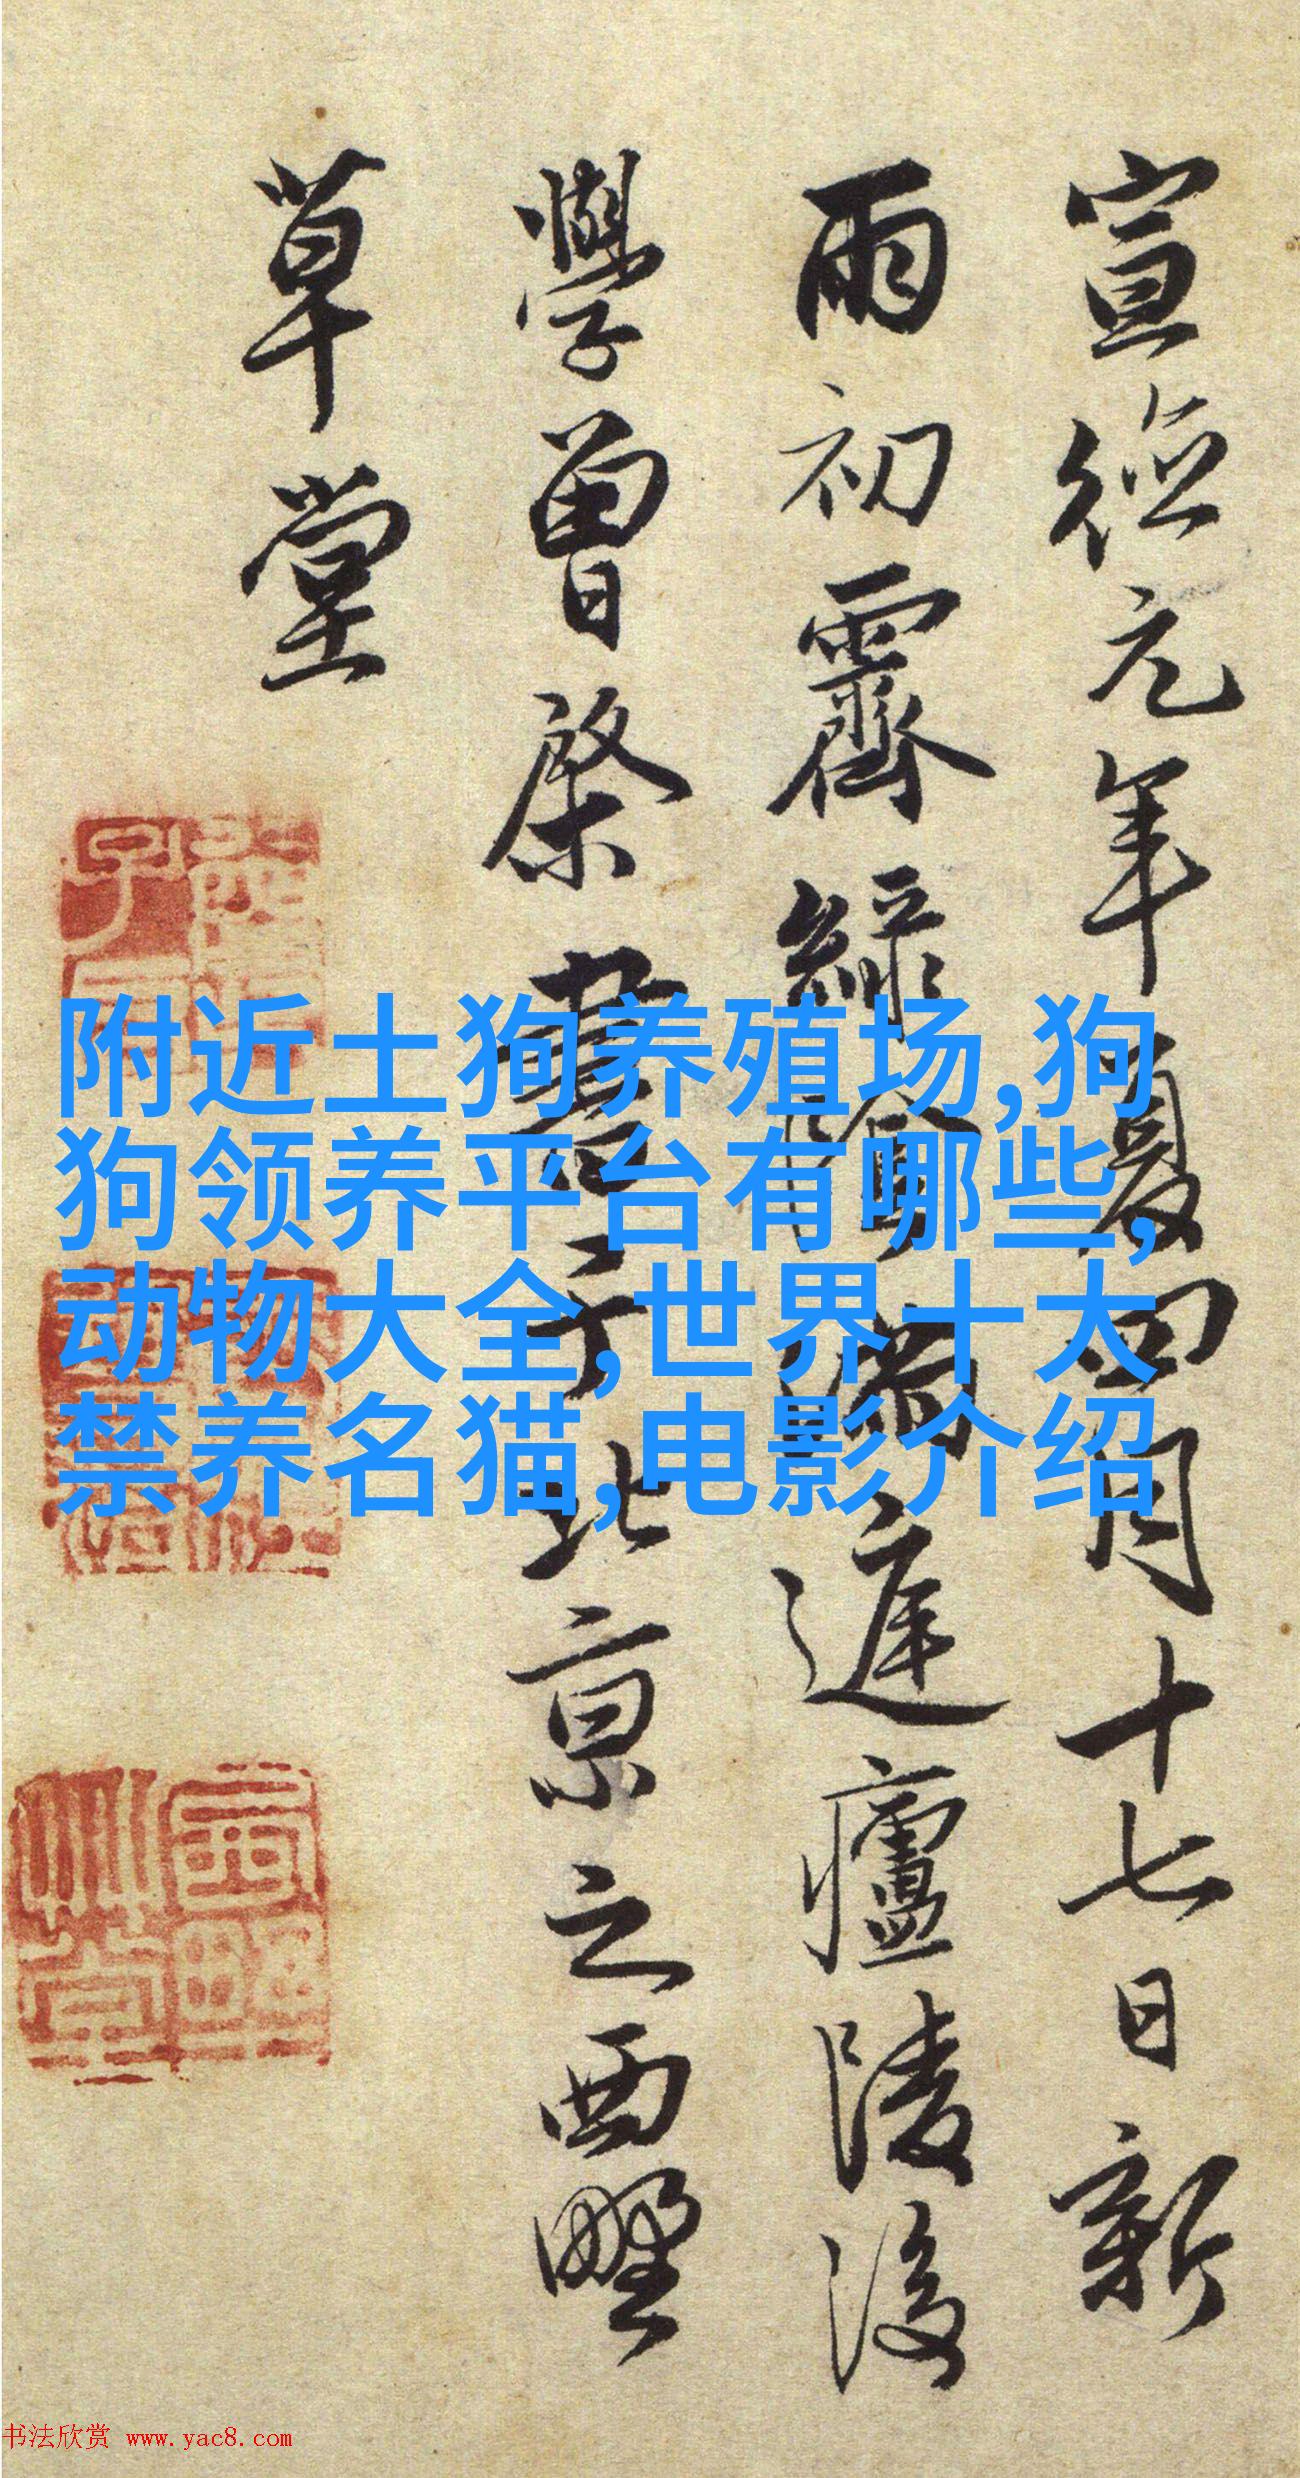 宣德元年夏四月十七日新
雨初霽綠陰滿庭廬陵後
學曾棨書于北京之西墅
草堂
附近土狗养殖场,狗
狗领养平台有哪些,
动物大全,世界十大
禁养名猫,电影介绍
书法欣赏 www.yac8.com